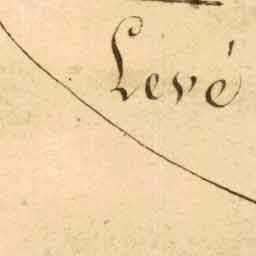 Levé